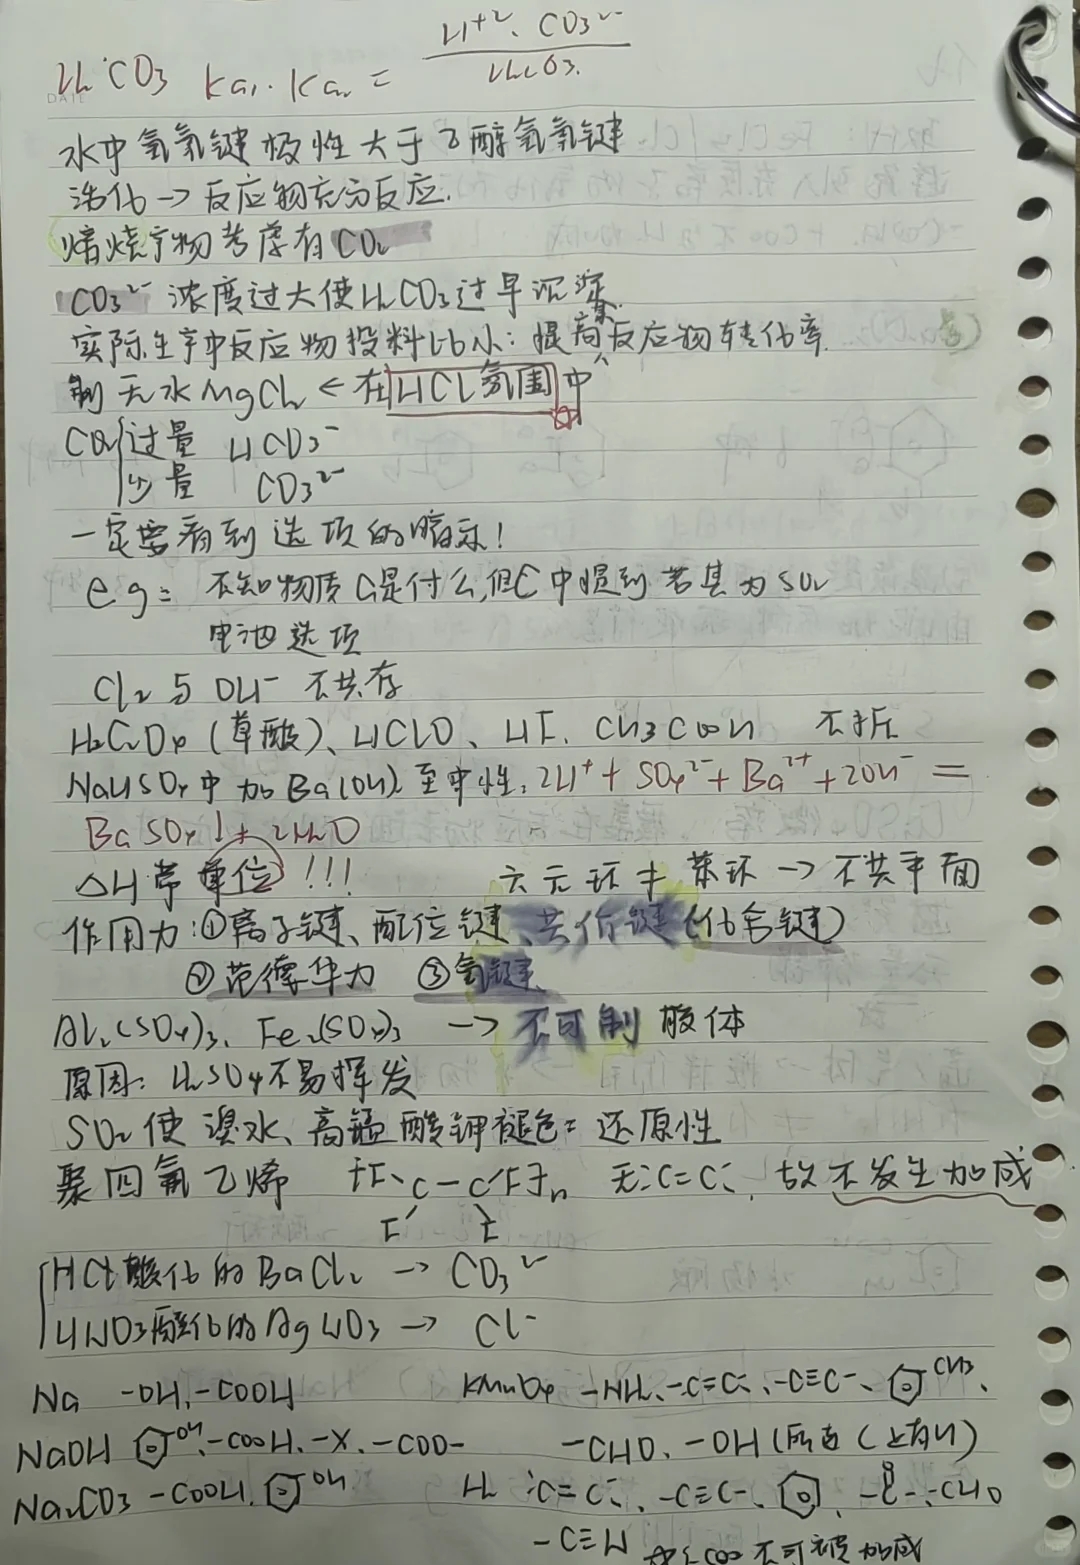 H₂CO3 Ka₁·Ka₂ = H⁺²·CO3²⁻ / H₂CO3.
DATE
水中氢氧键极性大于乙醇氢氧键
活化→反应物充分反应.
焙烧产物考虑有CO₂
CO3²⁻浓度过大使H₂CO3过早沉淀.
实际生产中反应物投料比小:提高某反应物转化率.
制无水MgCl₂ ← 在HCl氛围中
CO₂ 过量 HCO3⁻
少量 CO3²⁻
一定要看到选项的暗示!
eg: 不知物质G是什么,但C中提到若其为SO₂
电池选项
Cl₂与OH⁻不共存
H₂C₂O₄(草酸)、HClO、HF、CH3COOH 不拆
NaHSO₄中加Ba(OH)₂至中性:2H⁺+SO₄²⁻+Ba²⁺+2OH⁻=
BaSO₄↓+2H₂O
△H带单位!!! 六元环≠苯环→不共平面
作用力:①离子键、配位键、共价键(化合键)
②范德华力 ③氢键
Al₂(SO₄)₃、Fe₂(SO₄)₃ → 不可制胶体
原因:H₂SO₄不易挥发
SO₂使溴水、高锰酸钾褪色:还原性
聚四氟乙烯 [F C—C F]n 无C=C,故不发生加成
F F
HCl酸化的BaCl₂ → CO3²⁻
HNO3酸化的AgNO3 → Cl⁻
Na -OH、-COOH
KMnO₄ -NH₂、-C=C、-C≡C-、CH3、
NaOH OH、-COOH、-X、-COO-
-CHO、-OH(所连C上有H)
Na₂CO3 -COOH、OH
H₂ C=C、-C≡C-、-C-、-CHO
-C≡N 不可被加成